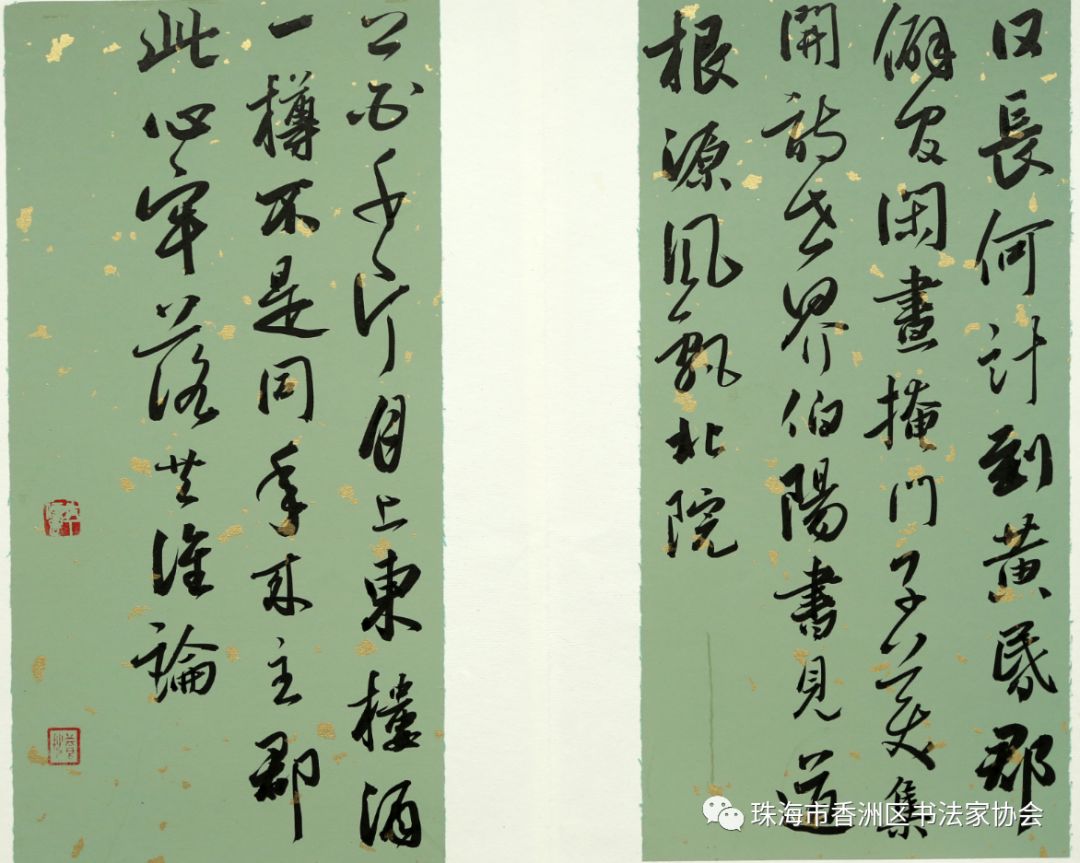 日長何計到黄昏郡
僻官閑晝掩門子美集
開詩世界伯陽書見道
根源風飄北院
花千片月上東樓酒
一樽不是同年來主郡
此心牢落共誰論
珠海市香洲区书法家协会